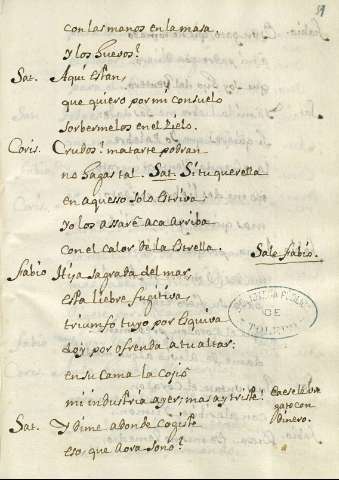 39
con las manos en la masa,
y los huevos?
Sat. Aqui estan,
que quiero por mi consuelo
sorbermelos en el zielo.
Coris. Crudos? matarte podran
no hagas tal. Sat. Si tu querella
en aquesso solo estriva,
yo los assarè aca arriba
con el calor de la estrella. Sale fabio.
fabio Hija sagrada del mar,
esta liebre fugitiva,
triumfo tuyo por esquiva
doy por ofrenda a tu altar;
en su cama la cojiò
mi industria ayer; mas ay triste! Caesele un
gato con
Dinero.
Sat. Y dime adonde cogiste
eso que aora sonò?
BIBLIOTECA PUBLICA
DE
TOLEDO